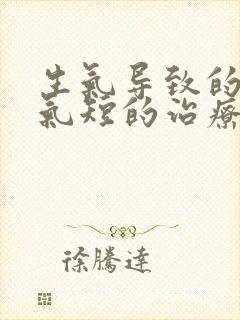 生氣导致的
氣短的治療
徐騰達